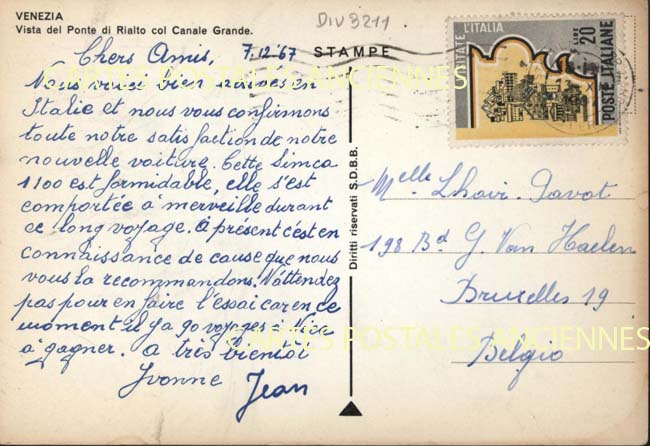 VENEZIA
Vista del Ponte di Rialto col Canale Grande.
DIV 3211
Chers Amis, 7.12.'67
STAMPE
Nous voici bien arrivés en
Italie et nous vous confirmons
toute notre satisfaction de notre
nouvelle voiture. Cette Simca
1100 est formidable, elle s'est
comportée à merveille durant
ce long voyage. A présent c'est en
connaissance de cause que nous
vous la recommandons. N'attendez
pas pour en faire l'essai car en ce
moment il y a 90 voyages à
à gagner. a très bientôt
Yvonne Jean
Diritti riservati S.D.B.B.
L'ITALIA
LIRE 20
POSTE ITALIANE
Melle Lhoir-Pavot
198 Bd G. Van Haelen
Bruxelles 19
Belgio
CARTES POSTALES ANCIENNES
CARTES POSTALES ANCIENNES